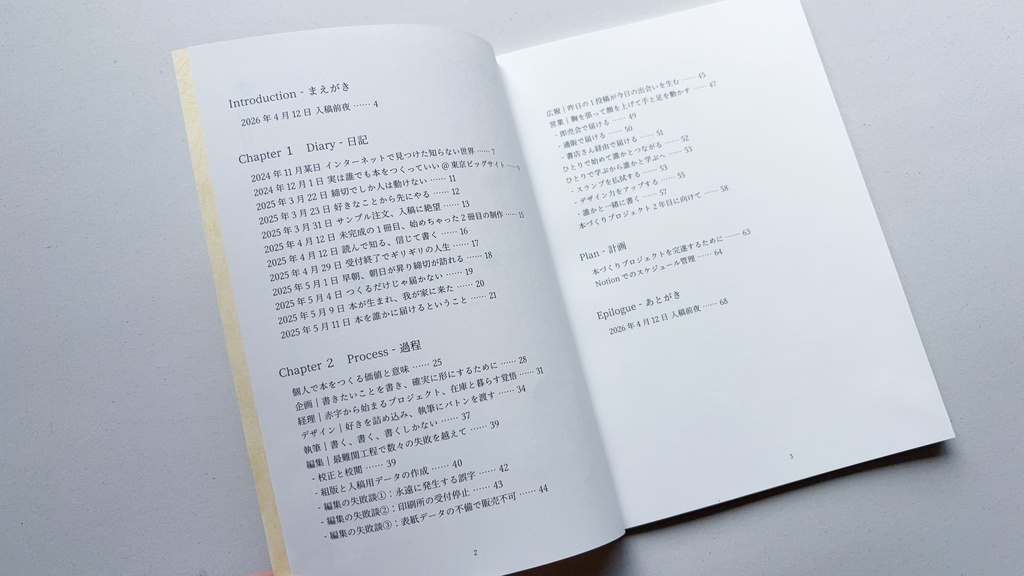 Introduction - まえがき
2026 年 4 月 12 日 入稿前夜 …… 4
Chapter 1 Diary - 日記
2024 年 11 月某日 インターネットで見つけた知らない世界 …… 7
2024 年 12 月 1 日 実は誰でも本をつくっていい @ 東京ビッグサイト ……
2025 年 3 月 22 日 締切でしか人は動けない …… 11
2025 年 3 月 23 日 好きなことから先にやる …… 12
2025 年 3 月 31 日 サンプル注文、入稿に絶望 …… 13
2025 年 4 月 12 日 未完成の 1 冊目、始めちゃった 2 冊目の制作 …… 15
2025 年 4 月 12 日 読んで知る、信じて書く …… 16
2025 年 4 月 29 日 受付終了でギリギリの人生 …… 17
2025 年 5 月 1 日 早朝、朝日が昇り締切が訪れる …… 18
2025 年 5 月 4 日 つくるだけじゃ届かない …… 19
2025 年 5 月 9 日 本が生まれ、我が家に来た …… 20
2025 年 5 月 11 日 本を誰かに届けるということ …… 21
Chapter 2 Process - 過程
個人で本をつくる価値と意味 …… 25
企画｜書きたいことを書き、確実に形にするために …… 28
経理｜赤字から始まるプロジェクト、在庫と暮らす覚悟 …… 31
デザイン｜好きを詰め込み、執筆にバトンを渡す …… 34
執筆｜書く、書く、書くしかない …… 37
編集｜最難関工程で数々の失敗を越えて …… 39
- 校正と校閲 …… 39
- 組版と入稿用データの作成 …… 40
- 編集の失敗談①：永遠に発生する誤字 …… 42
- 編集の失敗談②：印刷所の受付停止 …… 43
- 編集の失敗談③：表紙データの不備で販売不可 …… 44
2
広報｜昨日の 1 投稿が今日の出会いを生む …… 45
営業｜胸を張って顔を上げて手と足を動かす …… 47
- 即売会で届ける …… 49
- 通販で届ける …… 50
- 書店さん経由で届ける …… 51
ひとりで始めて誰かとつながる …… 52
ひとりで学ぶから誰かと学ぶへ …… 53
- スランプを払拭する …… 53
- デザイン力をアップする …… 55
- 誰かと一緒に書く …… 57
本づくりプロジェクト 2 年目に向けて …… 58
Plan - 計画
本づくりプロジェクトを完遂するために …… 63
Notion でのスケジュール管理 …… 64
Epilogue - あとがき
2026 年 4 月 12 日 入稿前夜 …… 68
3